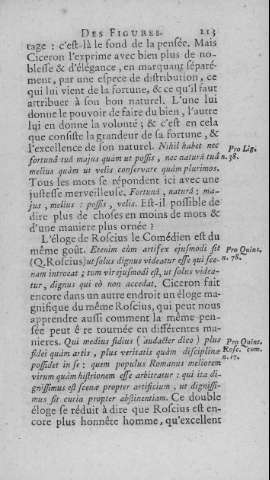 DES FIGURES. 213
tage : c'est-là le fond de la pensée. Mais
Ciceron l'exprime avec bien plus de no-
blesse & d'élégance, en marquant séparé-
ment, par une espece de distribution, ce
qui lui vient de la fortune, & ce qu'il faut
attribuer à son bon naturel. L'une lui
donne le pouvoir de faire du bien, l'autre
lui en donne la volonté ; & c'est en cela
que consiste la grandeur de sa fortune, &
l'excellence de son naturel. Nihil habet nec
fortuna tua majus quàm ut possis, nec natura tua
melius quàm ut velis conservare quàm plurimos.
Pro Lig.
n. 38.
Tous les mots se répondent ici avec une
justesse merveilleuse. Fortuna, natura : ma-
jus, melius : possis, velis. Est-il possible de
dire plus de choses en moins de mots &
d'une maniere plus ornée ?
L'éloge de Roscius le Comédien est du
même goût. Etenim cùm artifex ejusmodi sit
(Q. Roscius) ut solus dignus videatur esse qui sce-
nam introeat ; tum vir ejusmodi est, ut solus videa-
tur, dignus qui eò non accedat. Ciceron fait
Pro Quint.
n. 78.
encore dans un autre endroit un éloge ma-
gnifique du même Roscius, qui peut nous
apprendre aussi comment la même pen-
sée peut ê re tournée en différentes ma-
nieres. Qui medius fidius ( audacter dico ) plus
fidei quàm artis, plus veritatis quàm disciplinæ
possidet in se ; quem populus Romanus meliorem
virum quàm histrionem esse arbitratur : qui ita di-
gnissimus est scenæ propter artificium, ut dignissi-
mus sit curia propter abstinentiam. Ce double
Pro Quint.
Rosc. com.
n. 17.
éloge se réduit à dire que Roscius est en-
core plus honnête homme, qu'excellent